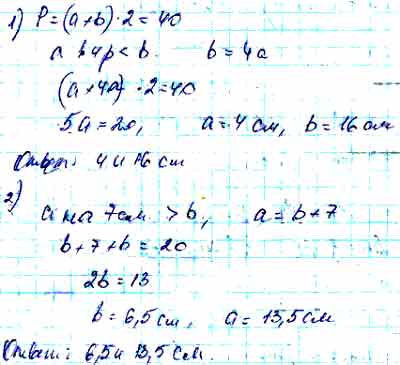 1) P = (a+b)·2 = 40
a в 4 р < b. b = 4a
(a+4a)·2=40
5a=20, a=4 см, b=16 см
Ответ: 4 и 16 cm
2)
a на 7см > b, a = b+7
b+7+b = 20
2b = 13
b = 6,5 cm, a = 13,5 см
Ответ: 6,5 и 13,5 см.